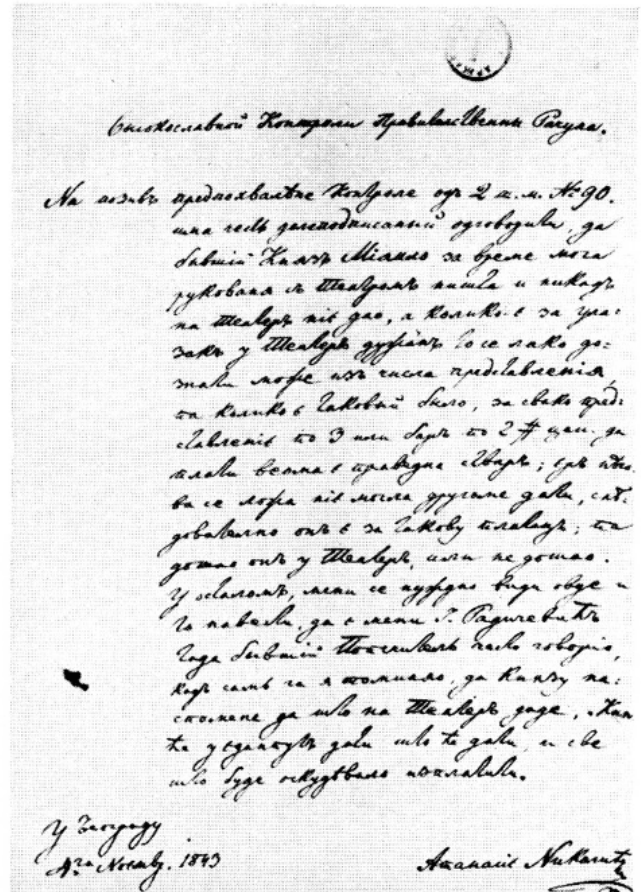 Високославной Контроли Правителственны Рачуна.
На позивъ предпохвалѣне Контроле одъ 2 т. м. № 90.
има честь долеподписаный одговорити, да
бывшій Князъ Міаило за време мога
рукованя съ Театромъ ништа и никадъ
на Театеръ ніє дао, а колико є за ула-
закъ у Театеръ дужанъ, то се лако до-
знати може изъ числа представленія,
па колико є таковый было, за свако пред-
ставленіє по 3 или баръ по 2 # цес. да
плати весма є праведна стварь; єръ нѣго-
ва се ложа ніє могла другоме дати, слѣ-
дователно онъ є за такову платацъ; па
дошао онъ у Театеръ, или не дошао.
У осталомъ, мени се нуждно види овде и
то навести, да є мени Г. Радичевићъ
тада бывшій Попечитель често говоріо,
кадъ самь га я помињао, да Князу на-
спомене да што на Театеръ даде,
ће уєданпутъ дати што ће дати, и све
што буде оскудѣвало исплатити.
У Београду
4га Новемб. 1843
Атанасіє Николић